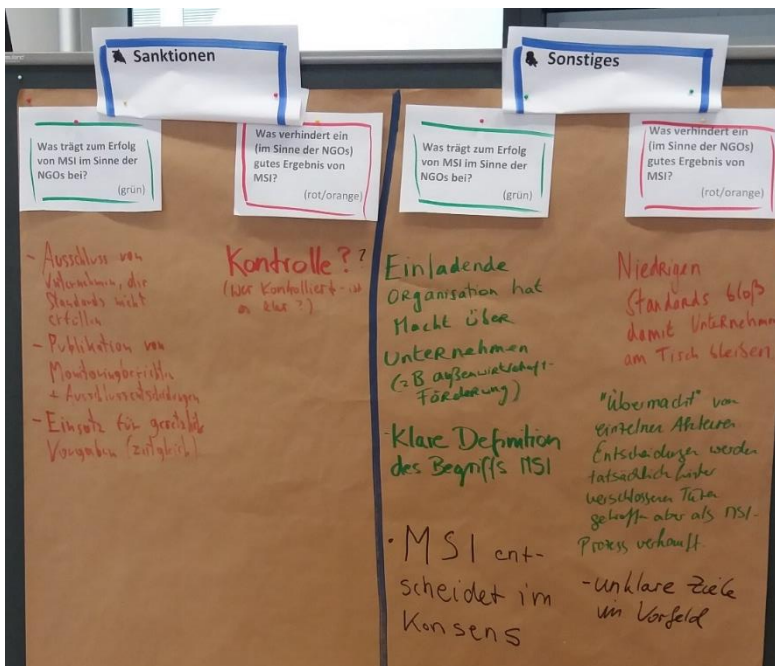 Sanktionen
Was trägt zum Erfolg
von MSI im Sinne der
NGOs bei?
(grün)
Was verhindert ein
(im Sinne der NGOs)
gutes Ergebnis von
MSI?
(rot/orange)
- Ausschluss von
Unternehmen, die
Standards nicht
erfüllen
- Publikation von
Monitoringberichten
+ Ausschlussentscheidungen
- Einsatz für gesetzliche
Vorgaben (zeitgleich)
Kontrolle??
(wer kontrolliert - ist
klar?)
Sonstiges
Was trägt zum Erfolg
von MSI im Sinne der
NGOs bei?
(grün)
Was verhindert ein
(im Sinne der NGOs)
gutes Ergebnis von
MSI?
(rot/orange)
Einladende
Organisation hat
Macht über
Unternehmen
(zB außenwirtschaft-
Förderung)
- Klare Definition
des Begriffs MSI
• MSI ent-
scheidet im
Konsens
Niedrigen
Standards bloß
damit Unternehmen
am Tisch bleiben
"Übermacht" von
einzelnen Akteuren
Entscheidungen werden
tatsächlich hinter
verschlossenen Türen
getroffen aber als MSI-
Prozess verkauft
- unklare Ziele
im Vorfeld